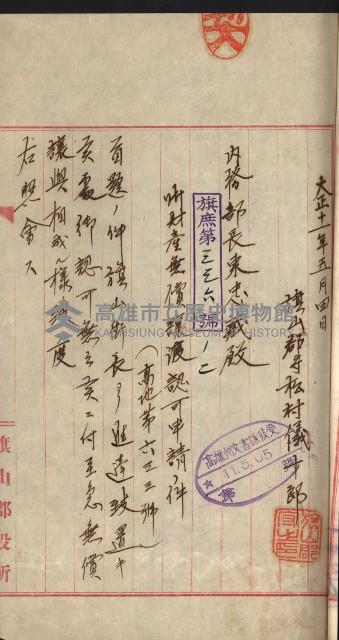 大正十一年五月四日
旗山郡守松村儀平郎
內務部長東忠藏殿
旗庶第三三六號ノ二
街財產無償讓渡認可申請ノ件
(高地第六三三號)
首題ノ件旗山街長ヨリ進達致置
處御認可無之付至急無償
讓與相成樣
右照會ス
高雄州文書課收受
11.5.05
旗山郡役所
高雄市立歷史博物館
KAOHSIUNG MUSEUM OF HISTORY